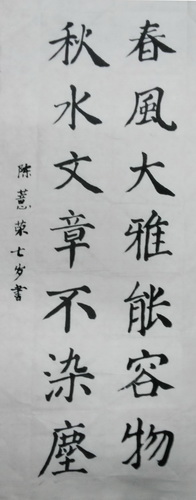 春風大雅能容物
秋水文章不染塵
陈薏荣七岁書